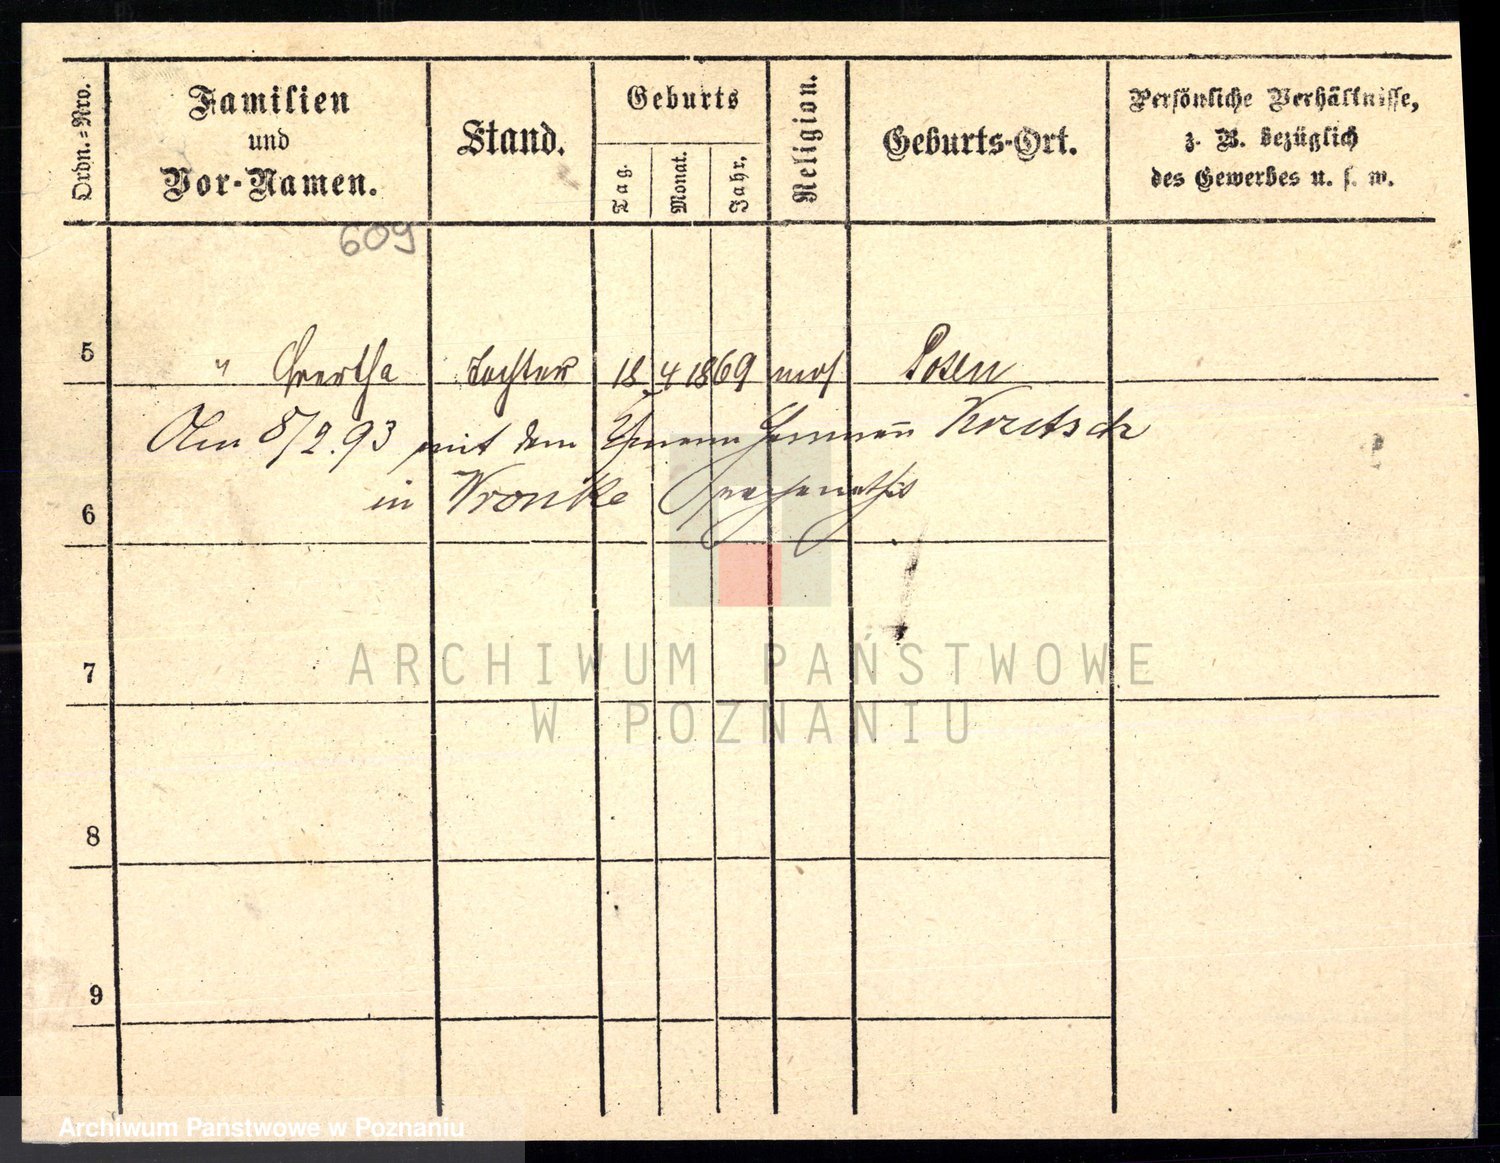 Ordn.=Nro.
Familien
und
Vor-Namen.
Stand.
Geburts
Tag.
Monat.
Jahr.
Religion.
Geburts-Ort.
Persönliche Verhältnisse,
z. B. bezüglich
des Gewerbes u. s. w.
609
5 " Bertha Tochter 18 4 1869 mos Posen
Am 8/2.93 mit dem Hermann Kretsch
6 in Wronke
7
8
9
ARCHIWUM PAŃSTWOWE
W POZNANIU
Archiwum Państwowe w Poznaniu